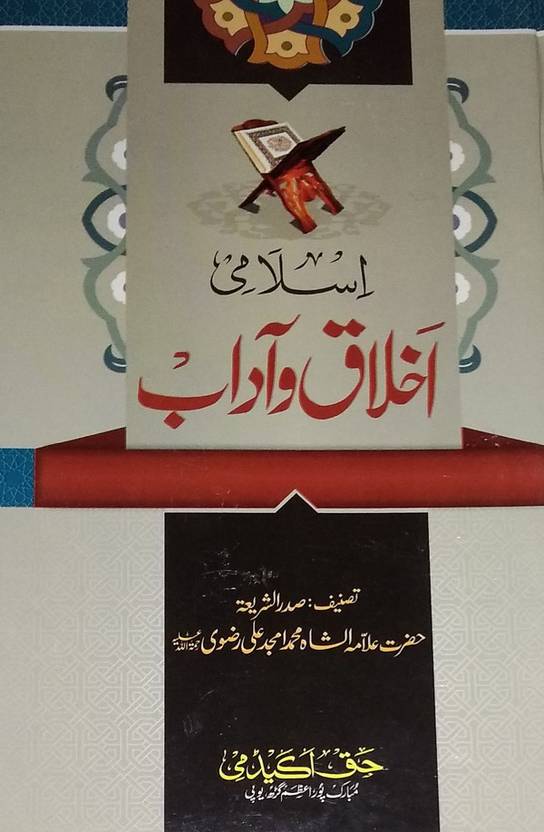 اِسلامی
اَخلاق و آداب
تصنیف: صدرالشریعۃ
حضرت علامہ الشاہ محمد امجد علی رضوی رحمۃ اللہ علیہ
حق اکیڈمی
مُبارک پور اعظم گڑھ، یوپی